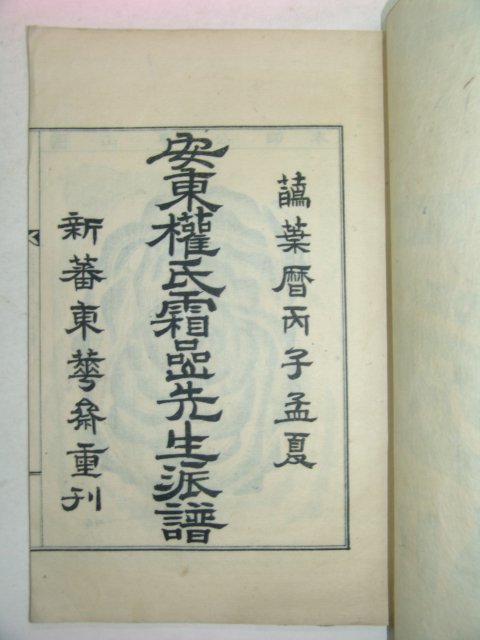 葉暦丙子孟夏
安東權氏霜嵒先生派譜
新蕃東華齋重刊